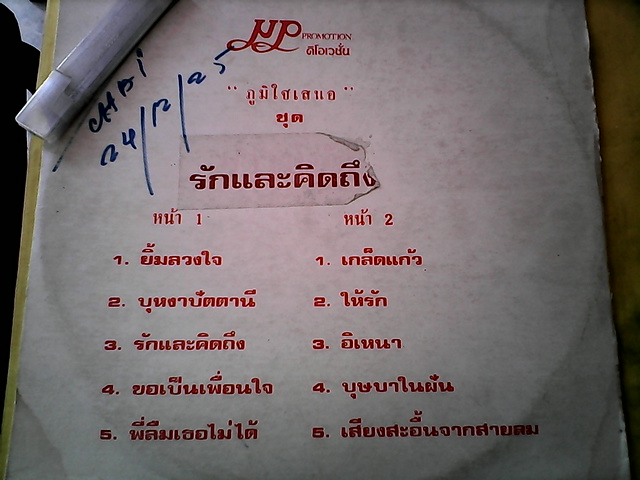 PROMOTION
ดีโอเวชั่น
" ภูมิใจเสนอ "
ชุด
24/12/25
รักและคิดถึง
หน้า 1
หน้า 2
1. ยิ้มลวงใจ
1. เกล็ดแก้ว
2. บุหงาปัตตานี
2. ให้รัก
3. รักและคิดถึง
3. อิเหนา
4. ขอเป็นเพื่อนใจ
4. บุษบาในฝัน
5. พี่ลืมเธอไม่ได้
5. เสียงสะอื้นจากสายลม